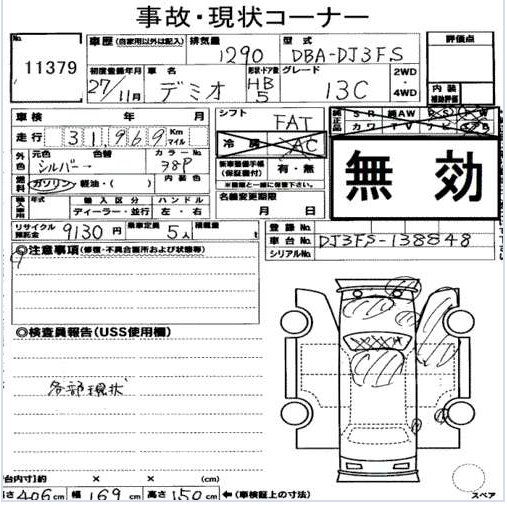 事故・現状コーナー
No. 11379
車歴 (自家用以外は記入) 排気量 1290 型式 DBA-DJ3FS 評価点
初度登録年月 27/11月 車名 デミオ 形状・ドア数 HB 5 グレード 13C 2WD・4WD 内装補助評価
車検 年 月 シフト FAT 純正品 SR 純AW PS PW
走行 31,969 Km マイル 冷房 AC カワ TV ナビ
外色 元色 シルバー 色替 カラーNo. 38P 新車整備手帳(保証書付) 有・無
無効
燃料 ガソリン・軽油・( ) 内装色 ※書類と一緒に保管下さい。
輸入車用 年式 輸入区分 ディーラー・並行 ハンドル 左・右 名義変更期限 月 日
リサイクル預託金 9130円 乗車定員 5人 積載量 t 登録No.
車台No. DJ3FS-138848
シリアルNo.
◎注意事項 (修復・不具合箇所および状態等)
◎検査員報告(USS使用欄)
各部現状
台内寸)約 × × (cm)
さ 406cm 幅 169cm 高さ 150cm ←(車検証上の寸法)
スペア